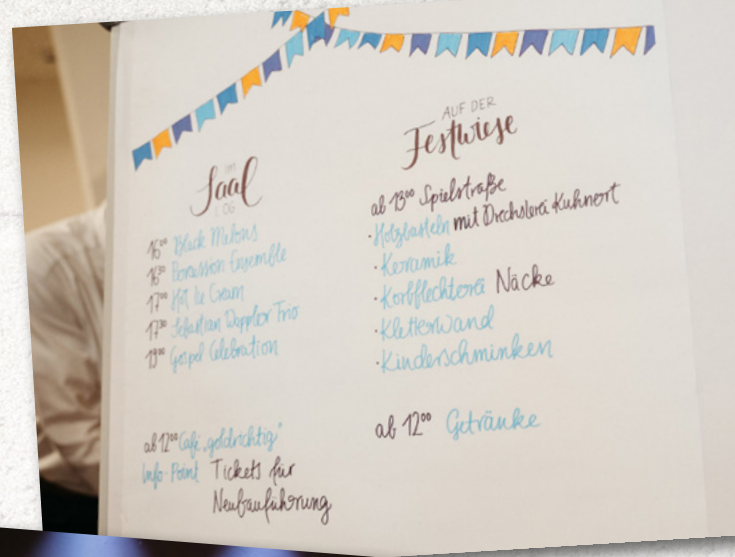 im
Saal
1. OG
16⁰⁰ Black Melons
16³⁰ Percussion Ensemble
17⁰⁰ Hot Ice Cream
17³⁰ Sebastian Wappler Trio
18⁰⁰ Gospel Celebration
ab 12⁰⁰ Café „goldrichtig“
Info-Point Tickets für
Neubauführung
AUF DER
Festwiese
ab 13⁰⁰ Spielstraße
· Holzbasteln mit Drechslerei Kuhnert
· Keramik
· Korbflechterei Näcke
· Kletterwand
· Kinderschminken
ab 12⁰⁰ Getränke